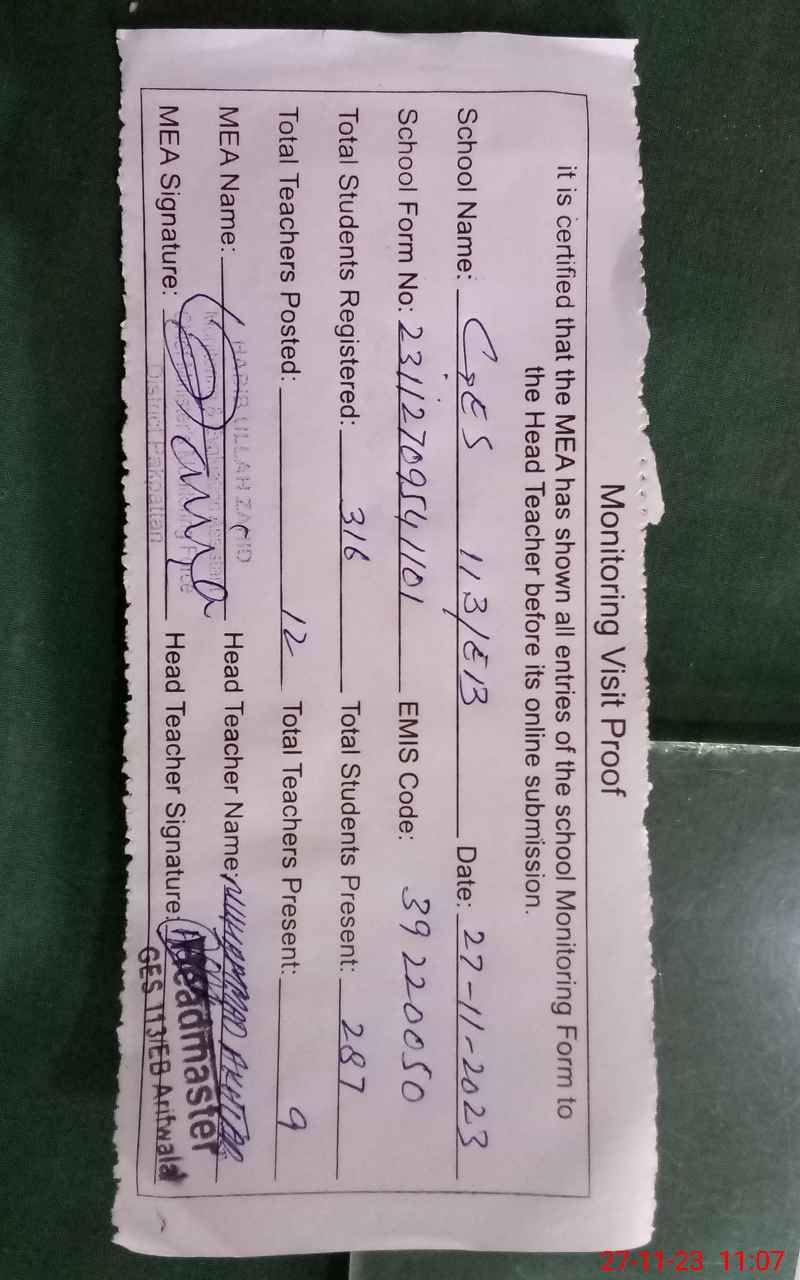 Monitoring Visit Proof
it is certified that the MEA has shown all entries of the school Monitoring Form to
the Head Teacher before its online submission.
School Name: GES 113/EB Date: 27-11-2023
School Form No: 23112709541101 EMIS Code: 39220050
Total Students Registered: 316 Total Students Present: 287
Total Teachers Posted: 12 Total Teachers Present: 9
MEA Name: HABIB ULLAH ZAHID Head Teacher Name: MUHAMMAD AKHTAR
MEA Signature: Head Teacher Signature:
District Pakpattan
Headmaster
GES 113/EB Arifwala
27-11-23 11:07